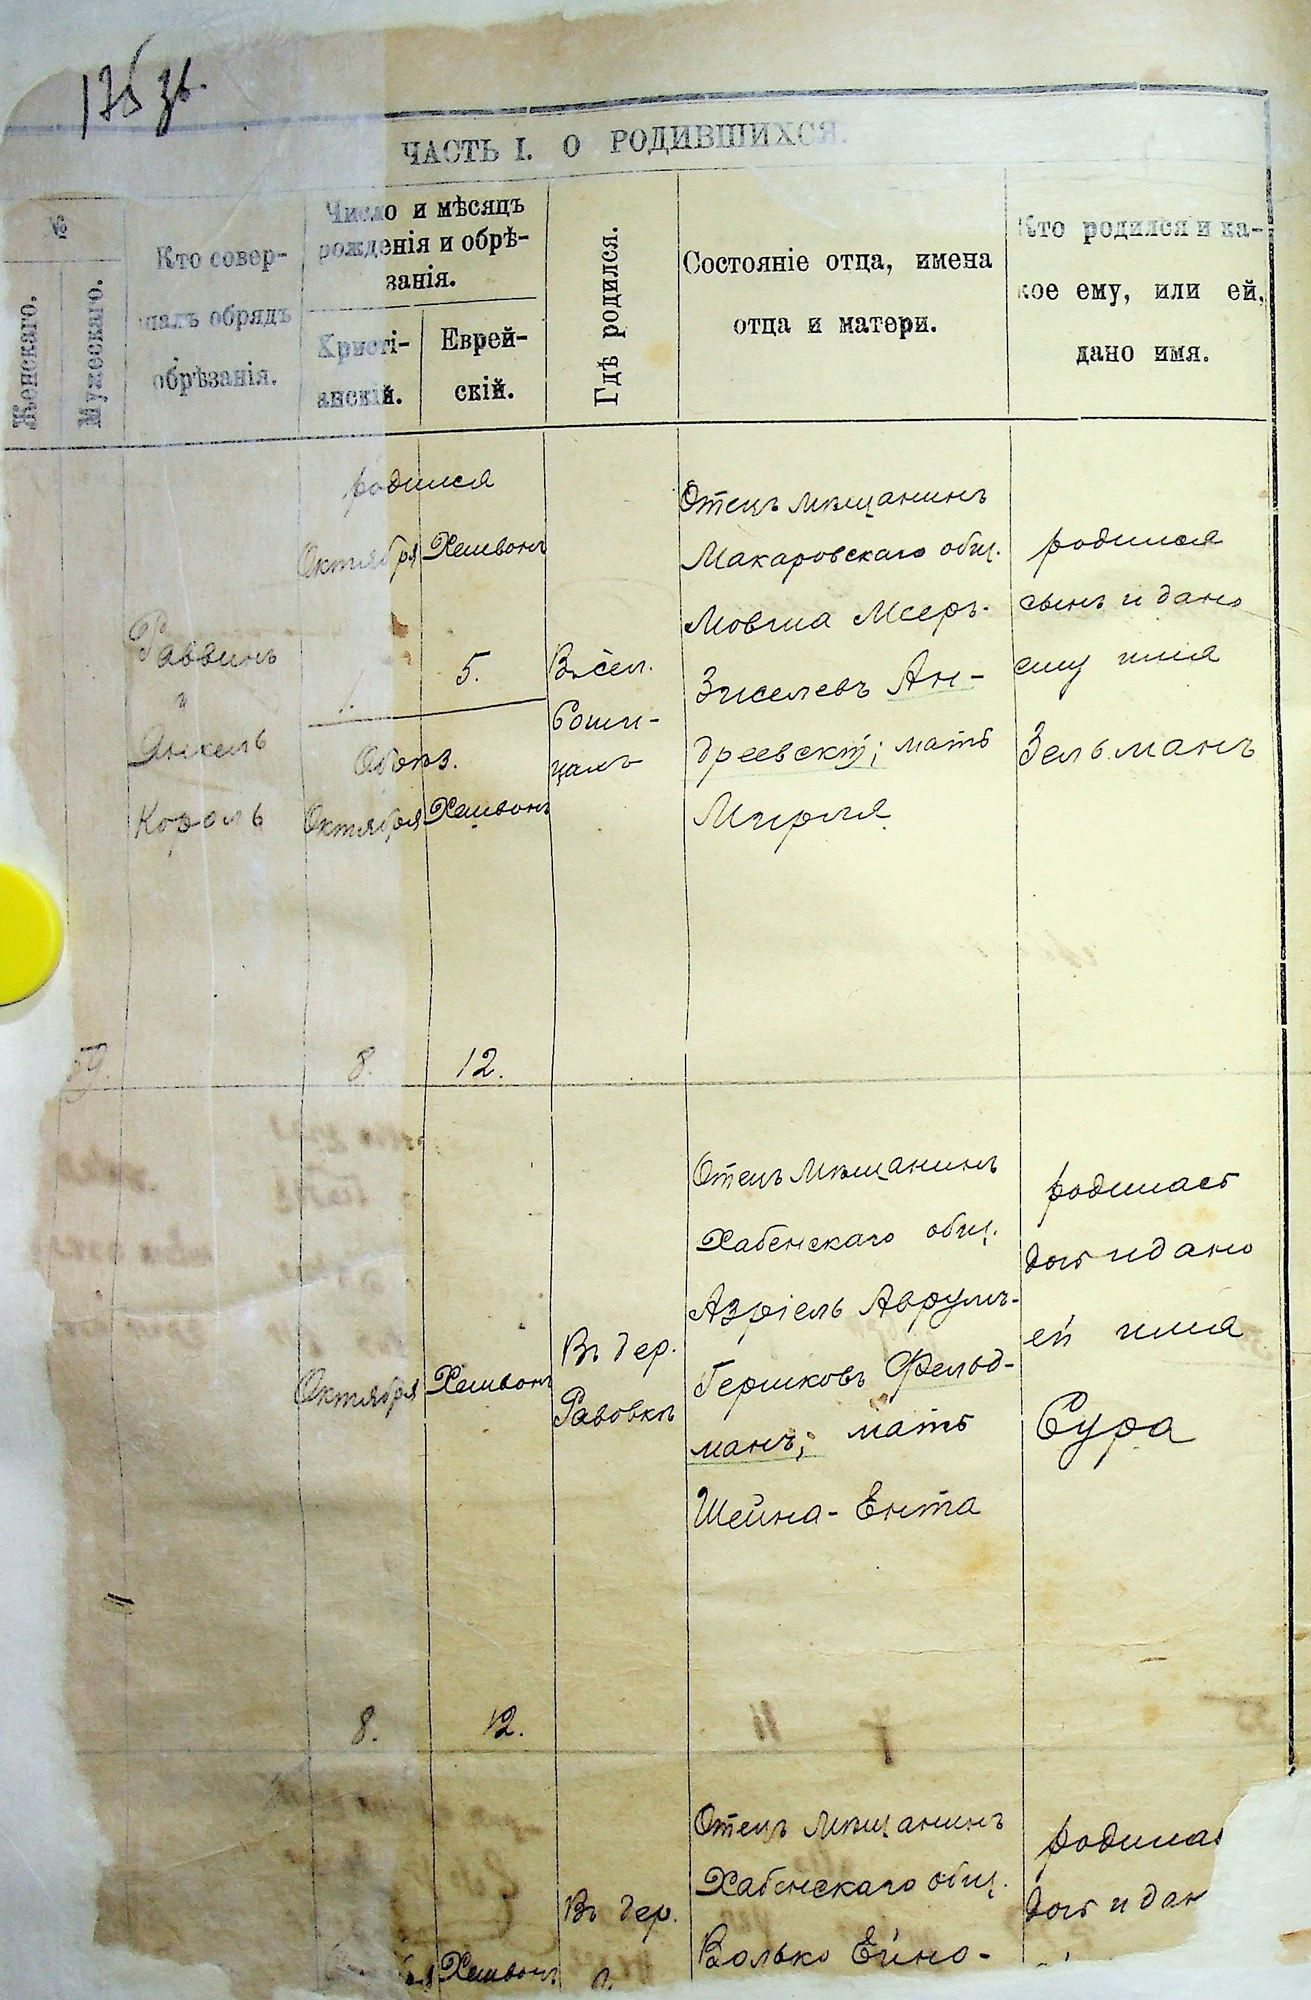 175 зв.
ЧАСТЬ I. О РОДИВШИХСЯ.
№
Женскаго.
Мужескаго.
Кто совер-
шалъ обрядъ
обрѣзанія.
Число и мѣсяцъ
рожденія и обрѣ-
занія.
Христі-
анскій.
Еврей-
скій.
Гдѣ родился.
Состояніе отца, имена
отца и матери.
Кто родился и ка-
кое ему, или ей,
дано имя.
59.
Раввинъ
и
Янкель
Король
родился
Октября Хешвонъ
1. 5.
Обрѣз.
Октября Хешвонъ
8. 12.
В сел.
Отецъ мѣщанинъ
Макаровскаго общ.
Мовша Мееръ-
Зиселевъ Ан-
дреевскій; мать
Мирля
родился
сынъ и дано
ему имя
Зельманъ
Октября Хешвонъ
8. 12.
Въ дер.
Равовкѣ
Отецъ мѣщанинъ
Хабенскаго общ.
Азріель Аврумъ-
Гершковъ Фельд-
манъ; мать
Шейна-Ента
родилась
дочь и дано
ей имя
Сура
Хешвонъ
Въ дер.
Отецъ мѣщанинъ
Хабенскаго общ.
Волько Ейно-
родилас
дочь и дан